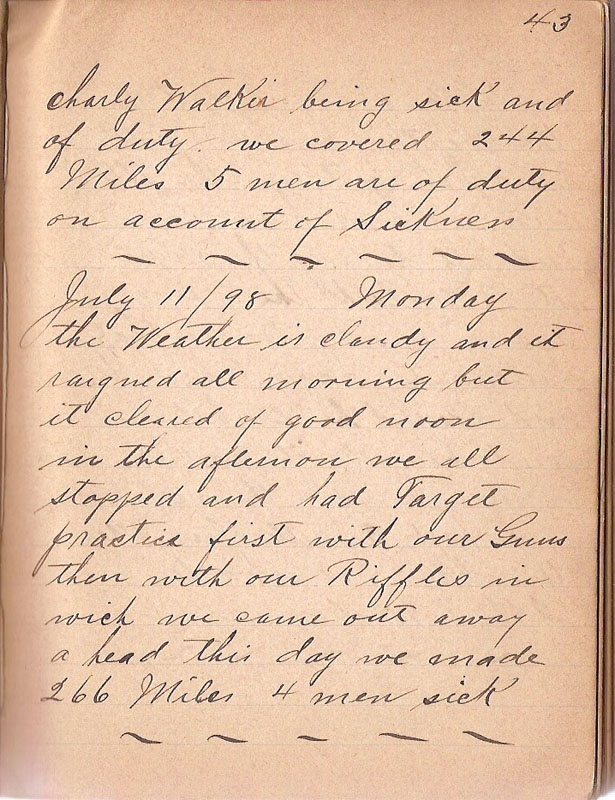 43
charly Walker being sick and
of duty. we covered 244
Miles 5 men are of duty
on account of Sickness
July 11/98 Monday
the Weather is claudy and it
raigned all morning but
it cleared of good noon
in the afternon we all
stopped and had Target
practice first with our Guns
then with our Riffles in
wich we came out away
a head this day we made
266 Miles 4 men sick